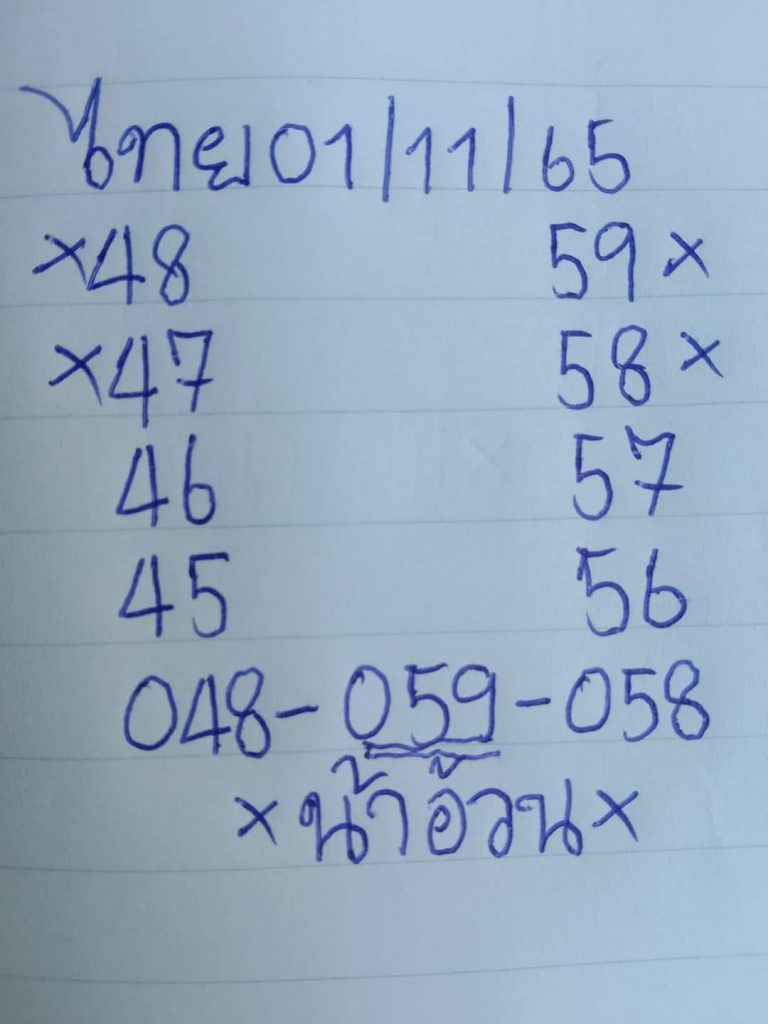 ไทย 01/11/65
×48 59×
×47 58×
46 57
45 56
048-059-058
×น้าอ้วน×